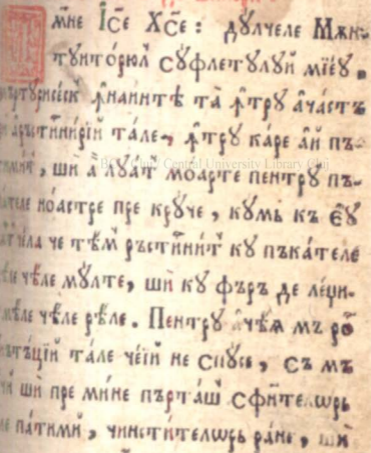 мне І҆с҃е Хс҃е : дꙋлчеле Мѫн-
тꙋиторюл сꙋфлетꙋлꙋй мїеꙋ.
ꙟнаинтѣ та ꙟтрꙋ ачастъ
тале, ꙟтрꙋ каре ай пъ-
ши ай лꙋат моарте пентрꙋ пъ-
ноастре пре крꙋче, кꙋмь къ еꙋ
че тѣм ръстигнит кꙋ пъкателе
чѣле мꙋлте, ши кꙋ фъръ де леџи-
чѣле рѣле. Пентрꙋ ачѣѧ мъ ро
тале чеїй не спꙋсе, съ мъ
ши пре мине пърташ сфинтелѡрь
патимй, чинстителѡрь ране, ши
Central University Library Cluj